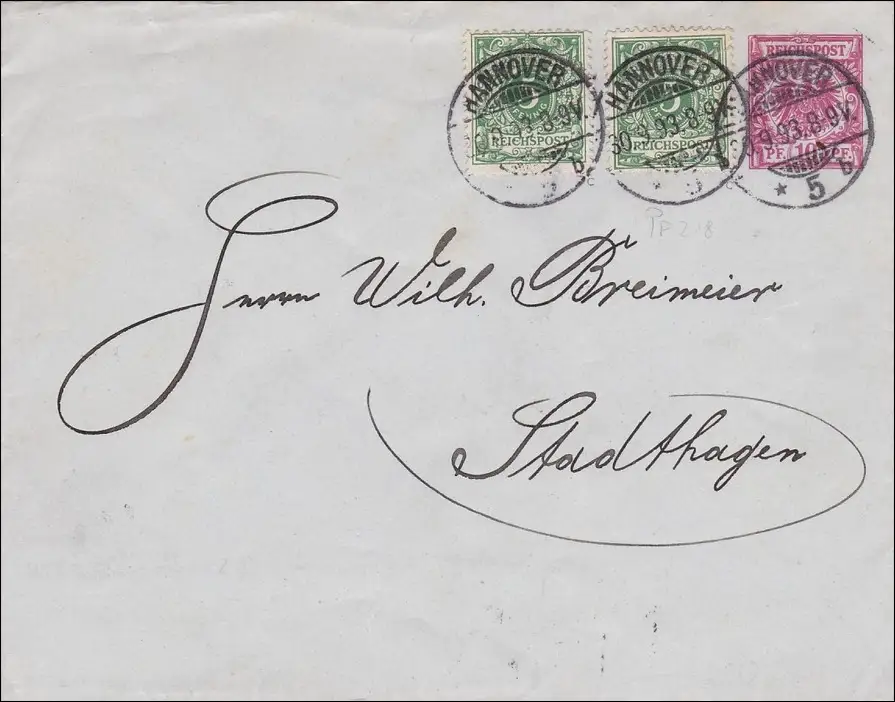 HANNOVER
REICHSPOST
HANNOVER
30.9.93.8-9V.
REICHSPOST
REICHSPOST
HANNOVER
9.93.8-9V.
PF. 10 PF.
* 5 b
Herrn Wilh. Breimeier
Stadthagen